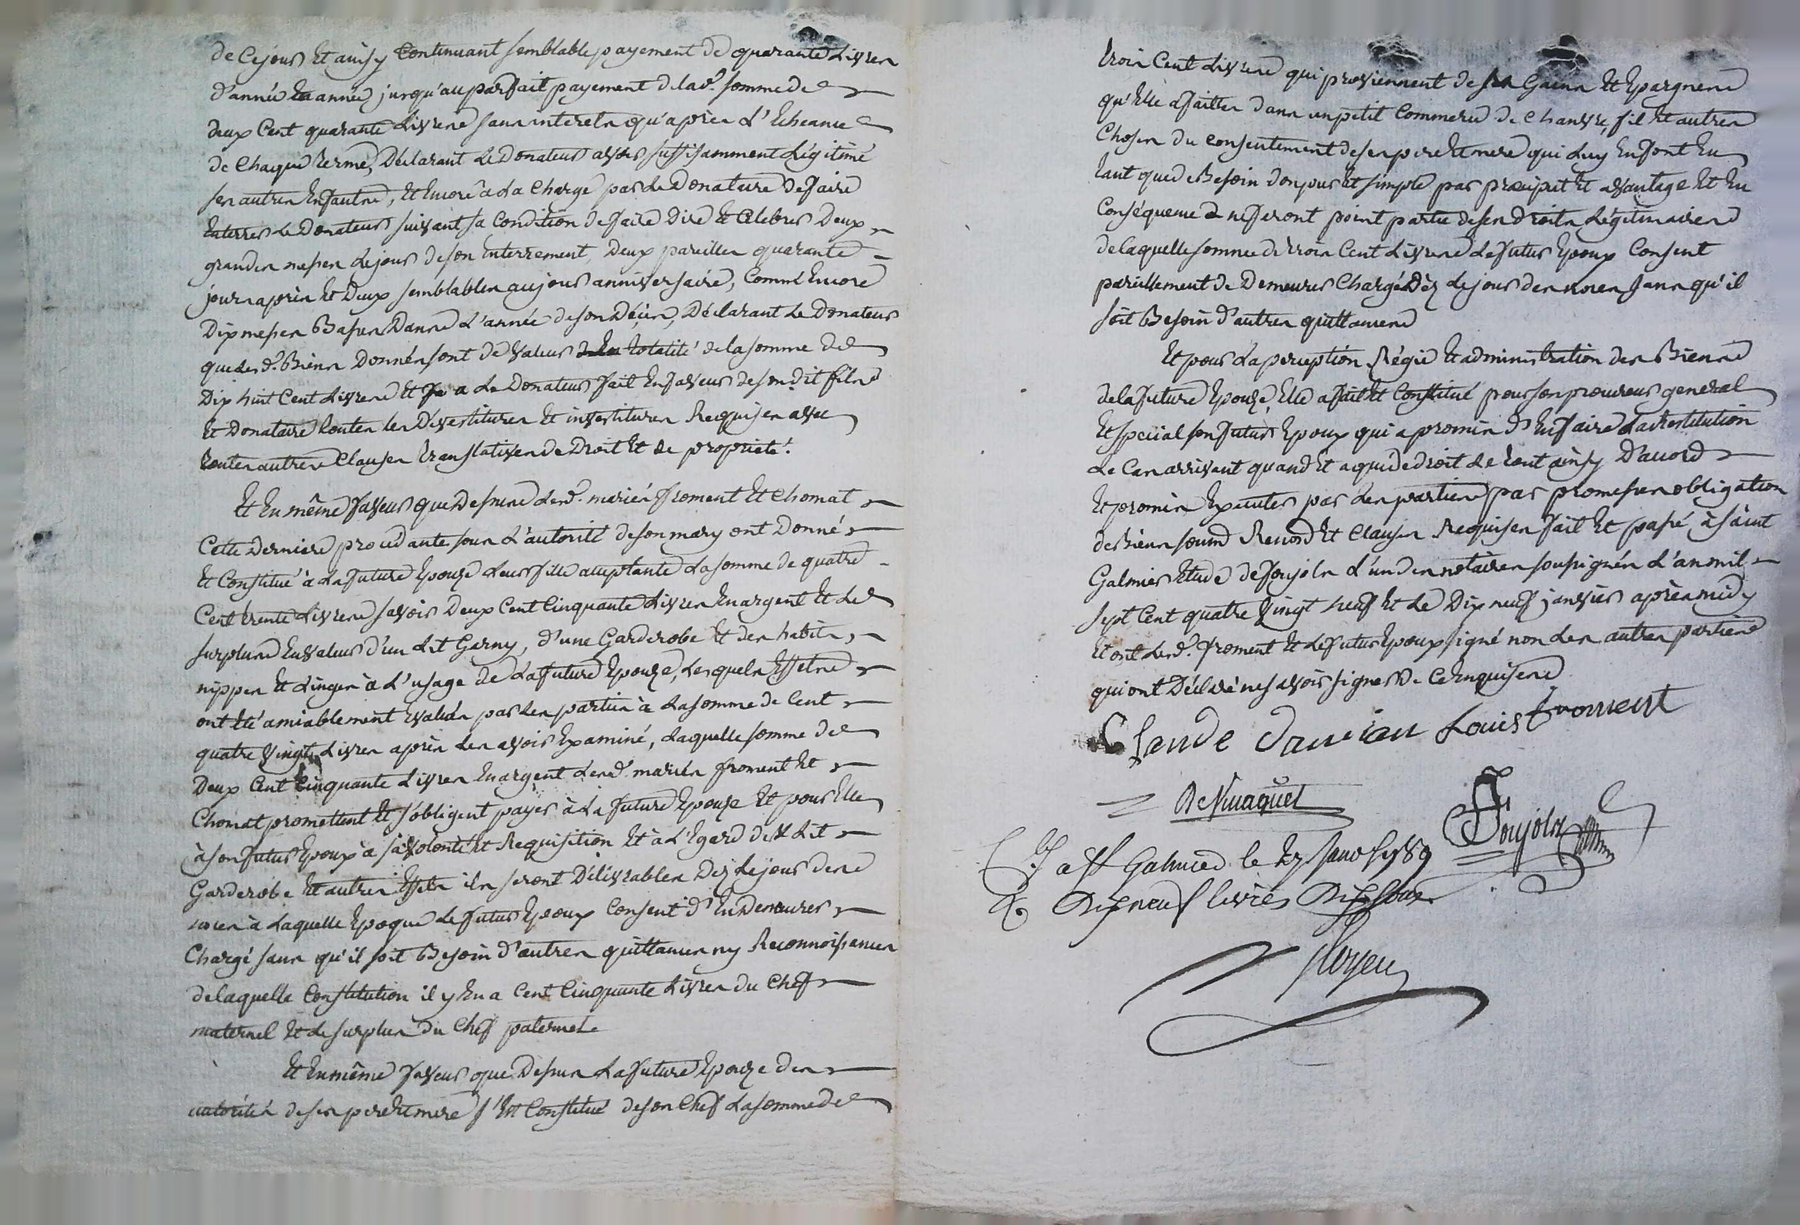 de ce jour et ainsy continuant semblable payement de quarante livres
d'année en année jusqu'au parfait payement de lad. somme de
deux cent quarante livres sans interets qu'après l'echeance
de chaque terme, Déclarant le Donateur avoir suffisamment légitimé
ses autres enfants, et encore à la charge par le Donataire de faire
enterrer le Donateur suivant sa condition de faire dire et celebrer Deux
grandes messes le jour de son enterrement, Deux pareilles quarante
jours après et Deux semblables au jour anniversaire, comme encore
Dix messes Basses Dans l'année de son Décès, Déclarant le Donateur
que lesd. Biens Donnés sont de valeur de la totalité de la somme de
Dix huit cent livres et a le Donateur fait en faveur de son dit fils
et Donataire toutes les Dévestitures et investitures Requises avec
toutes autres clauses translatives de Droit et de propriété.
Et en même faveur que Dessus lesd. mariés froment et chomat
cette derniere procedante sous l'autorité de son mary ont donné
et constitué à la future Epouze leur fille acceptante la somme de quatre
cent trente livres savoir Deux cent cinquante livres en argent et le
surplus en valeur d'un lit garny, d'une Garderobe et des habits,
nippes et linges à l'usage de la future Epouze, lesquels effets
ont été amiablement évalués par les parties à la somme de cent
quatre vingt livres après les avoir examiné, laquelle somme de
Deux cent cinquante livres en argent lesd. mariés froment et
Chomat promettent et s'obligent payer à la future Epouze et pour elle
à son futur Epoux à sa volonté et Requisition et à l'égard desd. lit
Garderobe et autres effets ils seront Délivrables Dez le jour des
noces à laquelle Epoque le futur Epoux consent d'en Demeurer
chargé sans qu'il soit Besoin d'autres quittances ny Reconnoissances
de laquelle constitution il y en a cent cinquante livres du chef
maternel et le surplus du chef paternel.
Et en même faveur que Dessus la future Epouze des
autorités de ses pere et mere s'est constitué de son chef la somme de
trois cent livres qui proviennent de ses Gains et Epargnes
qu'elle a faittes dans un petit commerce de chanvre, fil et autres
choses du consentement de ses pere et mere qui luy en font en
tant que de Besoin don pur et simple par preciput et avantage et en
conséquence ne feront point partie de ses Droits légitimaires
de laquelle somme de trois cent livres le futur Epoux consent
pareillement de Demeurer chargé Dèz le jour des noces sans qu'il
soit Besoin d'autres quittances
Et pour la perception Régie et administration des Biens
de la future Epouze, elle a fait et constitué pour son procureur general
et special son futur Epoux qui a promis d'en faire la restitution
le cas arrivant quand et a qui de droit le tout ainsy D'accord
et promis executer par les parties par promesses obligation
de Biens soumis Renond et clauses Requises fait et passé à saint
Galmier Etude de foujols l'un des notaires soussignés l'an mil
sept cent quatre vingt neuf et le Dix neuf janvier après midy
et ont lesd. froment et le futur Epoux signé non les autres parties
qui ont Déclaré ne savoir signer De ce enquises
Claude Louis froment
foujols
a st Galmier le 27 janv 1789
Dix neuf livres Dix sous